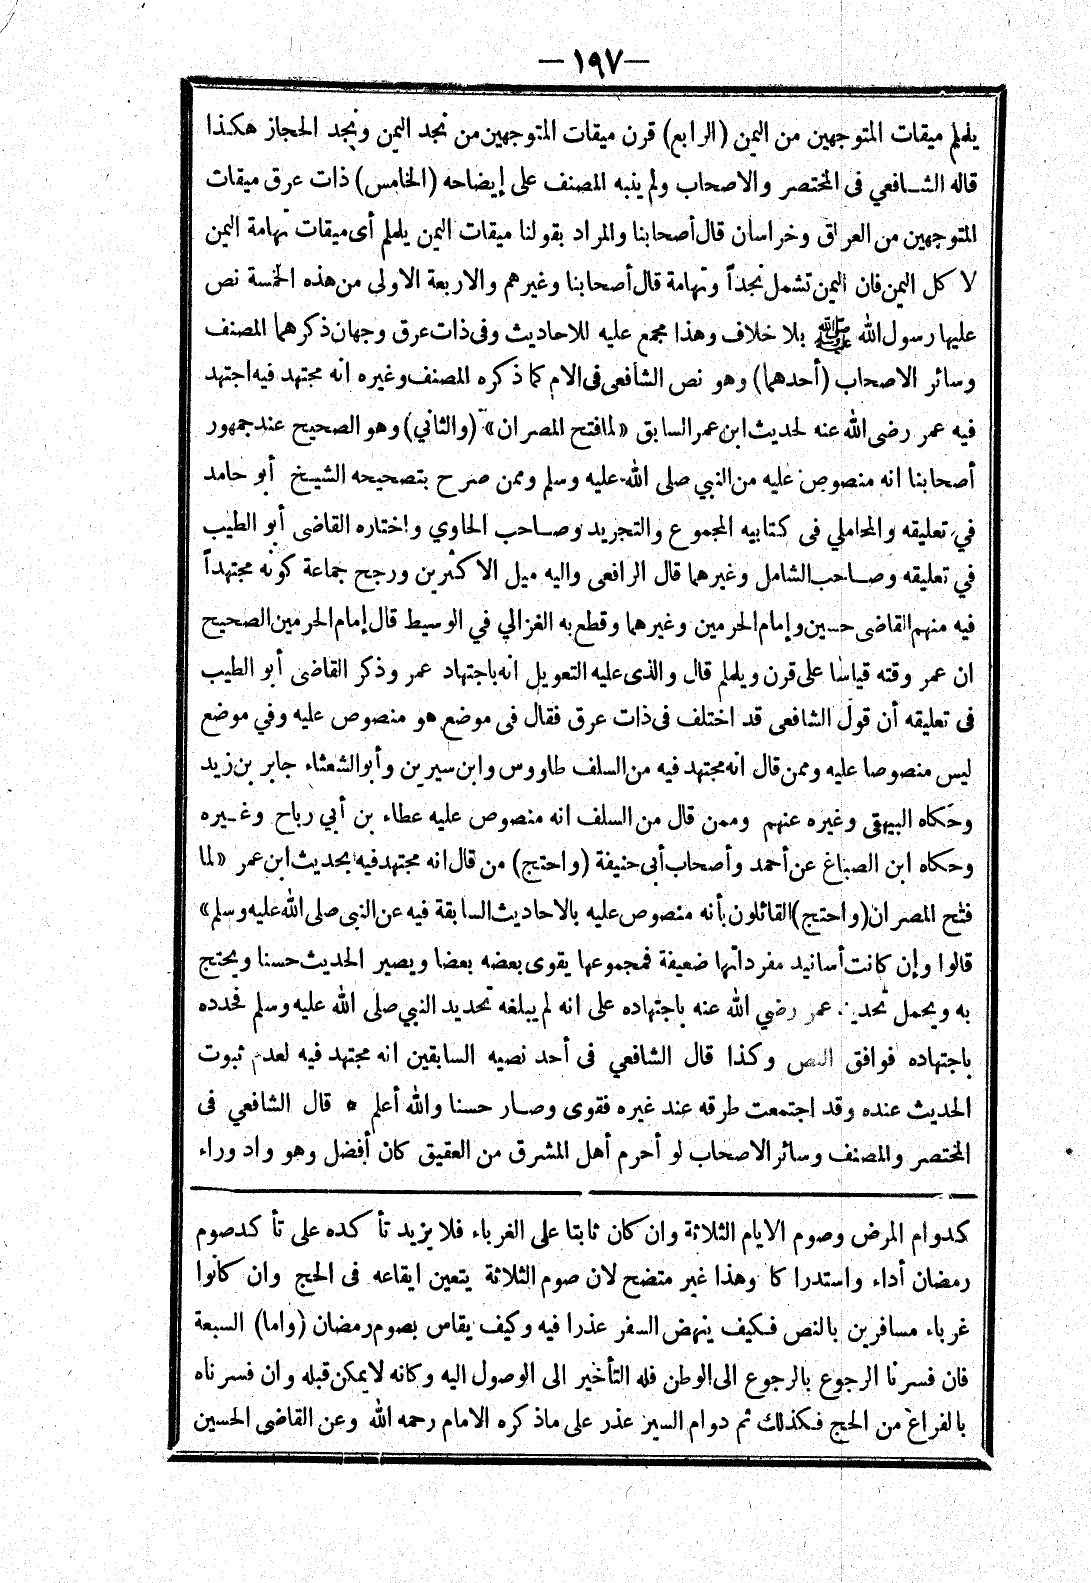 — ١٩٧ —
يلملم ميقات المتوجهين من اليمن (الرابع) قرن ميقات المتوجهين من نجد اليمن ونجد الحجاز هكذا
قاله الشافعي فى المختصر والاصحاب ولم ينبه المصنف على إيضاحه (الخامس) ذات عرق ميقات
المتوجهين من العراق وخراسان قال أصحابنا والمراد بقولنا ميقات اليمن يلملم أى ميقات تهامة اليمن
لا كل اليمن فان اليمن تشمل نجداً وتهامة قال أصحابنا وغيرهم والاربعة الاولى من هذه الخمسة نص
عليها رسول الله ﷺ بلا خلاف وهذا مجمع عليه للاحاديث وفى ذات عرق وجهان ذكرهما المصنف
وسائر الاصحاب (أحدهما) وهو نص الشافعى فى الام كما ذكره المصنف وغيره انه مجتهد فيه اجتهد
فيه عمر رضى الله عنه لحديث ابن عمر السابق «لما فتح المصران» (والثاني) وهو الصحيح عند جمهور
أصحابنا انه منصوص عليه من النبي صلى الله عليه وسلم وممن صرح بتصحيحه الشيخ أبو حامد
في تعليقه والمحاملي فى كتابيه المجموع والتجريد وصاحب الحاوي واختاره القاضى أبو الطيب
في تعليقه وصاحب الشامل وغيرهما قال الرافعى واليه ميل الاكثرين ورجح جماعة كونه مجتهداً
فيه منهم القاضى حسين وإمام الحرمين وغيرهما وقطع به الغزالي في الوسيط قال إمام الحرمين الصحيح
ان عمر وقته قياسا على قرن ويلملم قال والذى عليه التعويل انه باجتهاد عمر وذكر القاضى أبو الطيب
فى تعليقه أن قول الشافعى قد اختلف فى ذات عرق فقال فى موضع هو منصوص عليه وفي موضع
ليس منصوصا عليه وممن قال انه مجتهد فيه من السلف طاووس وابن سيرين وأبو الشعثاء جابر بن زيد
وحكاه البيهقى وغيره عنهم وممن قال من السلف انه منصوص عليه عطاء بن أبي رباح وغيره
وحكاه ابن الصباغ عن أحمد وأصحاب أبى حنيفة (واحتج) من قال انه مجتهد فيه بحديث ابن عمر «لما
فتح المصران (واحتج) القائلون بأنه منصوص عليه بالاحاديث السابقة فيه عن النبى صلى الله عليه وسلم»
قالوا وإن كانت أسانيد مفرداتها ضعيفة فمجموعها يقوى بعضه بعضا ويصير الحديث حسنا ويحتج
به ويحمل تحديد عمر رضي الله عنه باجتهاده على انه لم يبلغه تحديد النبي صلى الله عليه وسلم فحدده
باجتهاده فوافق النص وكذا قال الشافعي فى أحد نصيه السابقين انه مجتهد فيه لعدم ثبوت
الحديث عنده وقد اجتمعت طرقه عند غيره فقوى وصار حسنا والله أعلم * قال الشافعي فى
المختصر والمصنف وسائر الاصحاب لو أحرم أهل المشرق من العقيق كان أفضل وهو واد وراء
كدوام المرض وصوم الايام الثلاثة وان كان ثابتا على الغرباء فلا يزيد تأكده على تأكد صوم
رمضان أداء واستدراكا وهذا غير متضح لان صوم الثلاثة يتعين ايقاعه فى الحج وان كانوا
غرباء مسافرين بالنص فكيف ينهض السفر عذرا فيه وكيف يقاس بصوم رمضان (واما) السبعة
فان فسرنا الرجوع بالرجوع الى الوطن فله التأخير الى الوصول اليه وكانه لا يمكن قبله وان فسرناه
بالفراغ من الحج فكذلك ثم دوام السير عذر على ما ذكره الامام رحمه الله وعن القاضى الحسين